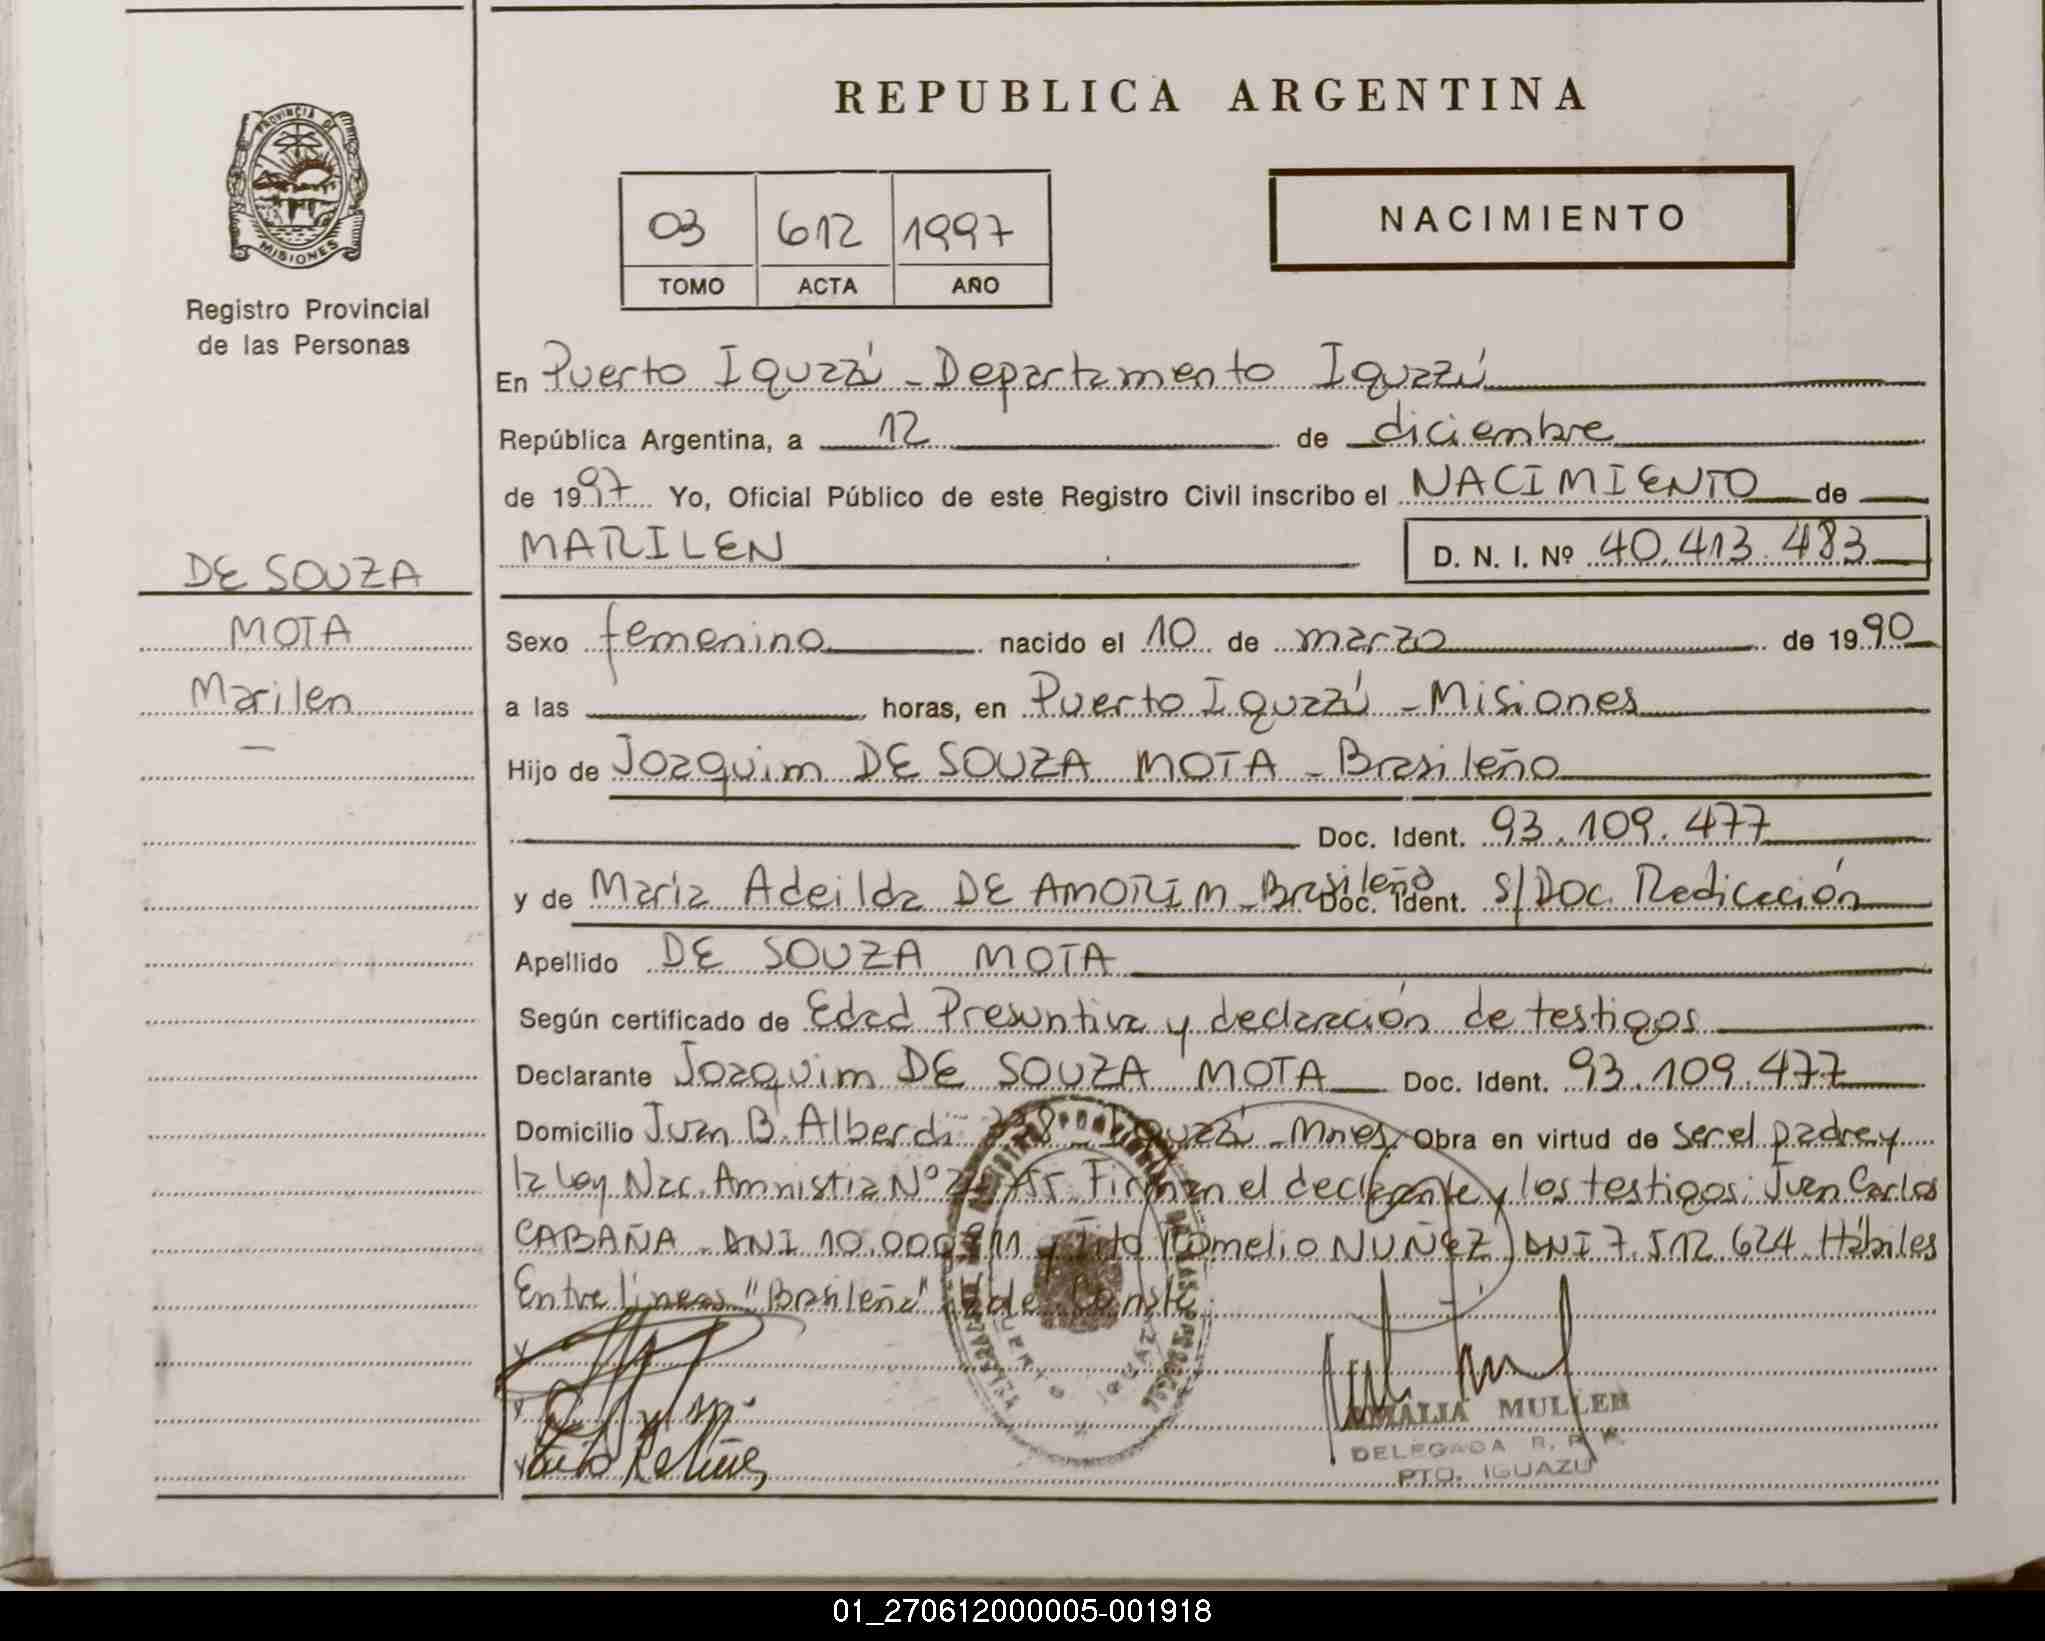 REPUBLICA ARGENTINA
PROVINCIA DE
MISIONES
Registro Provincial
de las Personas
03 612 1997
TOMO ACTA AÑO
NACIMIENTO
En Puerto Iguazú - Departamento Iguazú
República Argentina, a 12 de diciembre
de 1997 Yo, Oficial Público de este Registro Civil inscribo el NACIMIENTO de
MARILEN D. N. I. Nº 40.413.483
DE SOUZA
MOTA
Marilen
Sexo femenino nacido el 10 de marzo de 1990
a las horas, en Puerto Iguazú - Misiones
Hijo de Joaquim DE SOUZA MOTA - Brasileño
Doc. Ident. 93.109.477
y de Maria Adeilda DE AMORIM - Brasileña Doc. Ident. S/Doc. Radicación
Apellido DE SOUZA MOTA
Según certificado de Edad Presuntiva y declaración de testigos
Declarante Joaquim DE SOUZA MOTA Doc. Ident. 93.109.477
Domicilio Juan B. Alberdi Iguazú - Mnes. Obra en virtud de ser el padre y
la Ley Nac. Amnistia Nº Firman el declarante y los testigos: Juan Carlos
CABAÑA - DNI 10.000.911 y Tito Romelio NUÑEZ DNI 7.512.624 Hábiles
Entre líneas "Brasileña" Vale Conste.
AMALIA MULLER
DELEGADA R. P. P.
PTO. IGUAZU
01_270612000005-001918